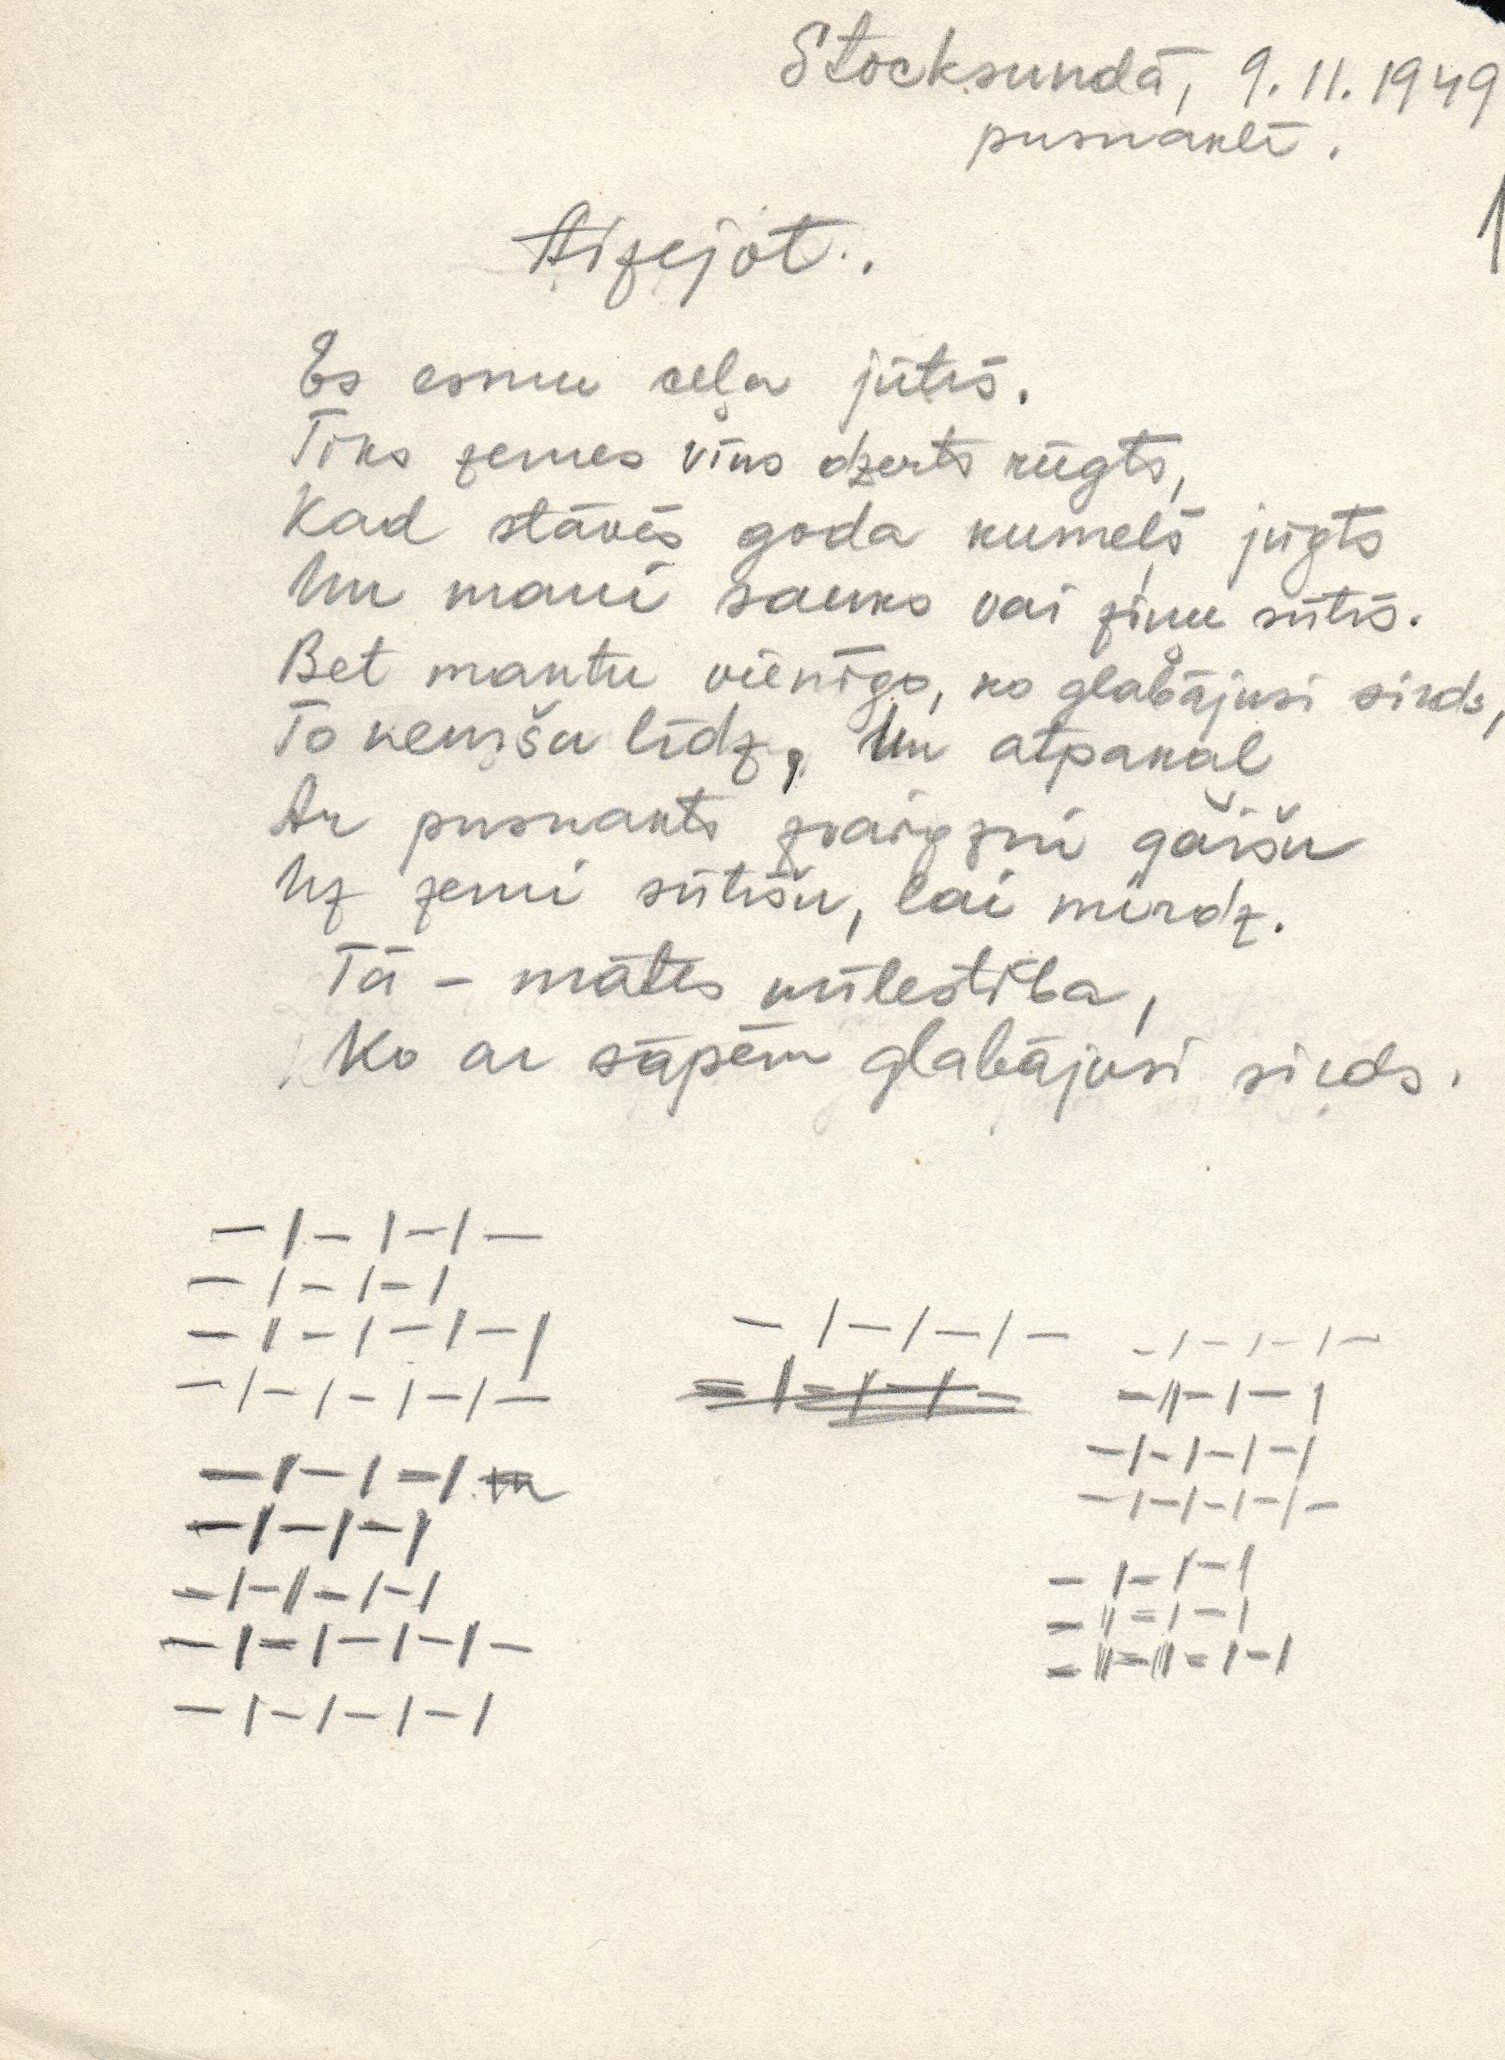 Stocksundā, 9.11.1949
pusnaktī.
1
Aizejot..
Es esmu ceļa jūtīs.
Tiks zemes vīns dzerts rūgts,
Kad stāvēs goda kumeļš jūgts
Un mani sauks vai ziņu sūtīs.
Bet mantu vienīgo, ko glabājusi sirds,
To neņemšu līdz, Un atpakaļ
Ar pusnakts zvaigzni gaišu
Uz zemi sūtīšu, lai mirdz.
Tā – mātes mīlestība,
Ko ar sāpēm glabājusi sirds.